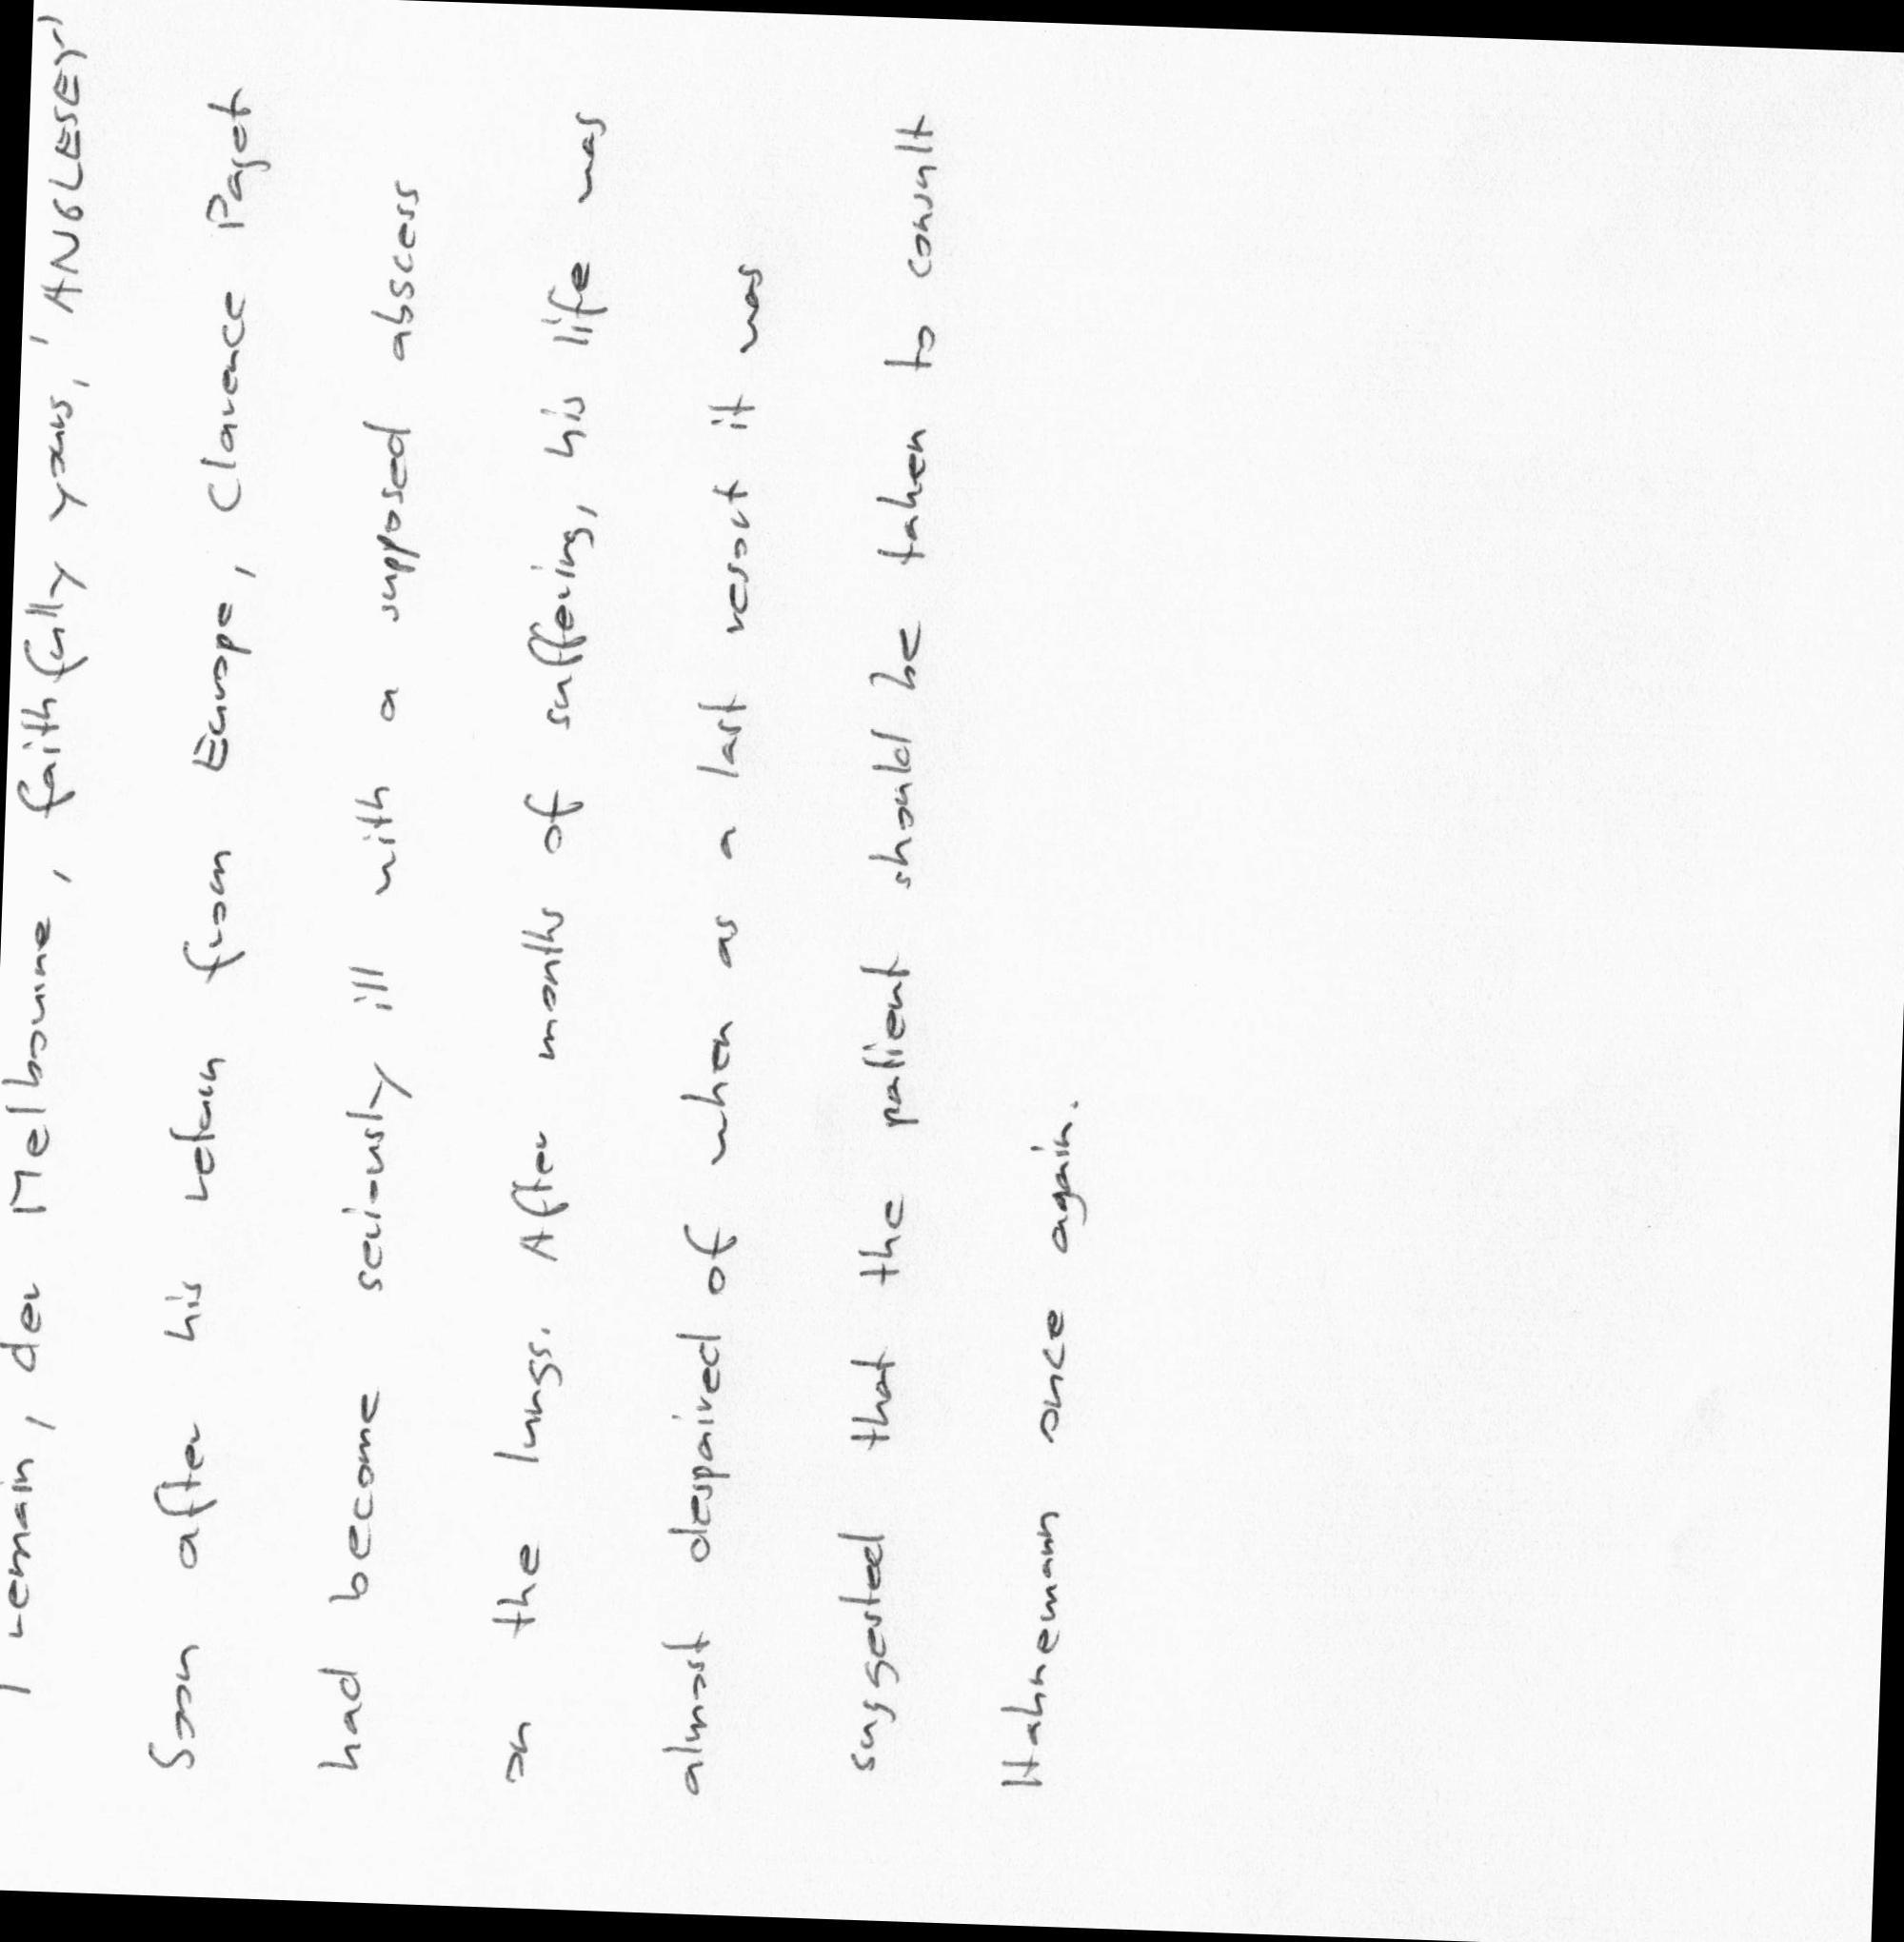 I remain, der Melbourne, faithfully yours,' 'ANGLESEY'
Soon after his return from Europe, Clarence Paget
had become seriously ill with a supposed abscess
on the lungs. After months of suffering, his life was
almost despaired of when as a last resort it was
suggested that the patient should be taken to consult
Hahnemann once again.